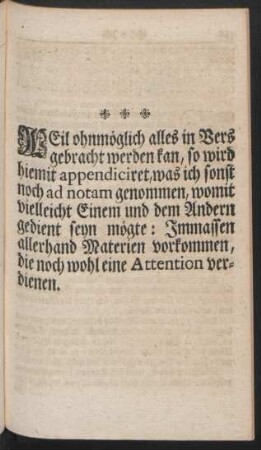 WEil ohnmöglich alles in Vers
gebracht werden kan, so wird
hiemit appendiciret, was ich sonst
noch ad notam genommen, womit
vielleicht Einem und dem Andern
gedient seyn mögte: Immassen
allerhand Materien vorkommen,
die noch wohl eine Attention ver-
dienen.